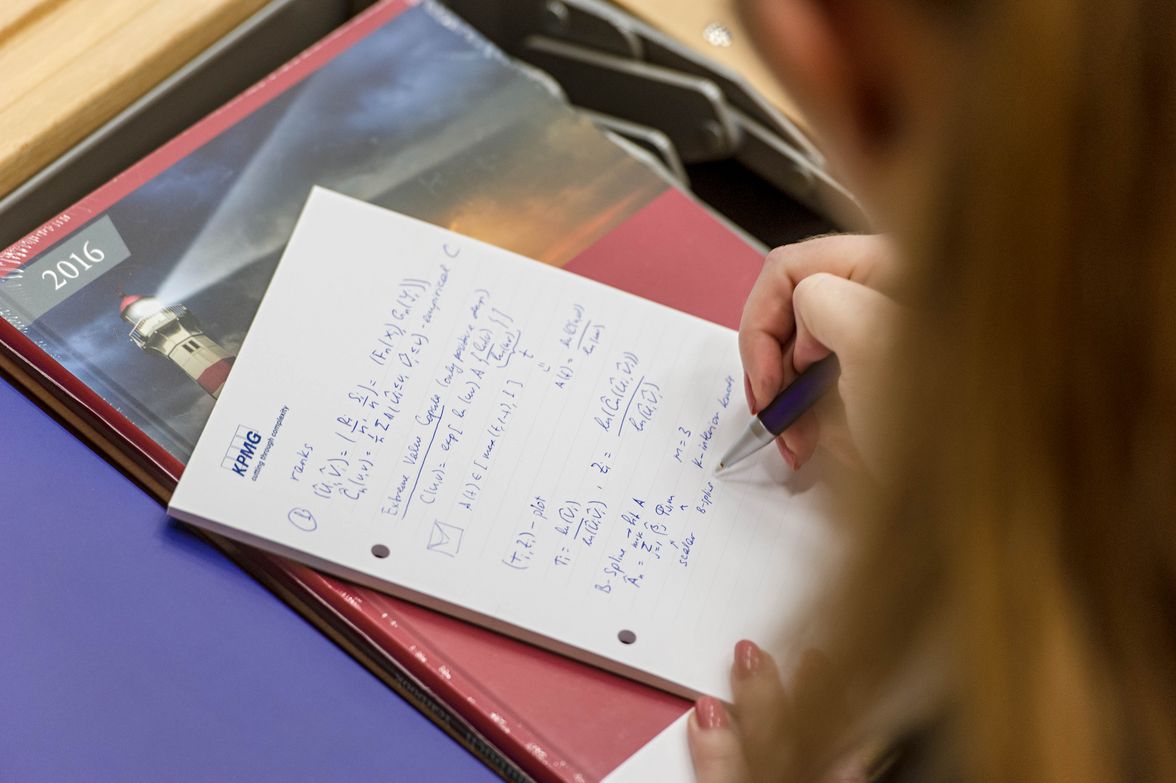 2016
KPMG
cutting through complexity
ranks
① (Û_i, V̂_i) = (R_i/n, S_i/n) = (F_n(X_i), G_n(Y_i))
Ĉ_n(u,v) = 1/n Σ 1(Û_i ≤ u, V̂_i ≤ v) - empirical C
Extreme Value Copula (only positive dep.)
C(u,v) = exp[ln(uv) A{ln(v)/ln(uv)}]
t
A(t) ∈ [max(t,1-t), 1]
A(t) = ln C(u,v)/ln(uv)
(T_i, Z_i) - plot
T_i = ln(V̂_i)/ln(Û_i V̂_i), Z_i = ln(Ĉ_n(Û_i, V̂_i))/ln(Û_i V̂_i)
B-spline → fit A
Â_n = Σ β_j φ_j,m
scalar
B-spline
m = 3
K-interior knots